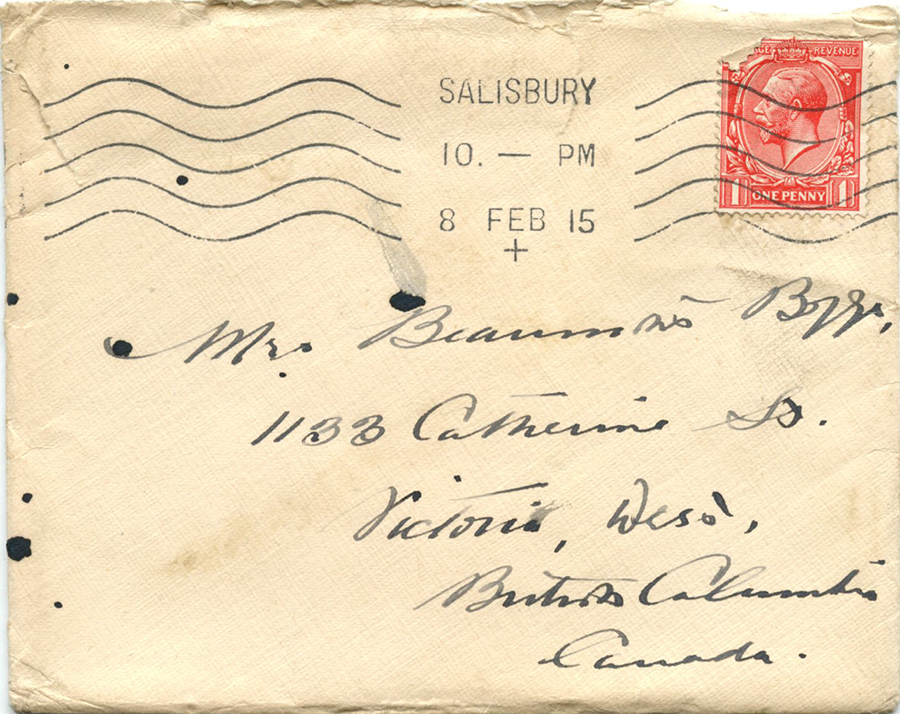 SALISBURY
10. — PM
8 FEB 15
+
REVENUE
1 ONE PENNY 1
Mrs Beaumont Boggs,
1133 Catherine St.
Victoria, West,
British Columbia
Canada.